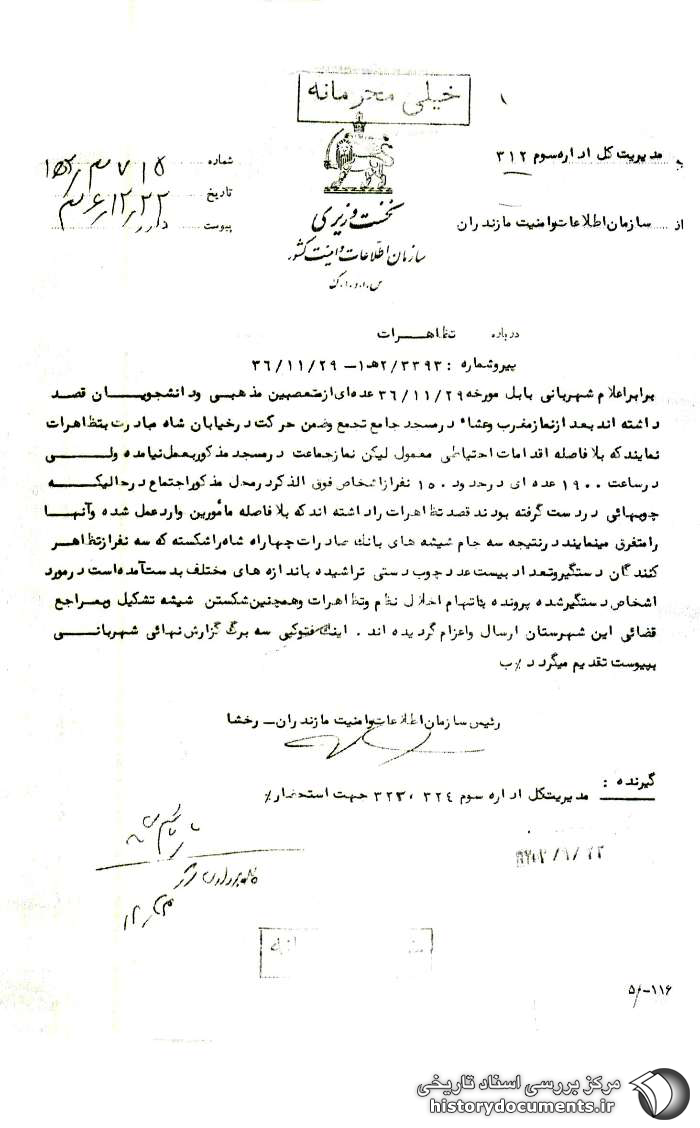 خیلی محرمانه
به مدیریت کل اداره سوم ۳۱۲
از سازمان اطلاعات وامنیت مازندران
نخست وزیری
سازمان اطلاعات و امنیت کشور
س.ا.و.ا.ک
شماره
تاریخ ۳۶/۱۲/۲۲
پیوست دارد
درباره تظاهرات
پیروشماره : ۲/۳۳۹۳ه‍۱ـ ۳۶/۱۱/۲۹
برابراعلام شهربانی بابل مورخه ۳۶/۱۱/۲۹ عده ای ازمتعصبین مذهبی ودانشجویان قصد
داشته اند بعد ازنمازمغرب وعشاء درمسجد جامع تجمع وضمن حرکت درخیابان شاه مبادرت بتظاهرات
نمایند که بلافاصله اقدامات احتیاطی معمول لیکن نمازجماعت درمسجد مذکوربعمل نیامده ولی
درساعت ۱۹۰۰ عده ای درحدود ۱۵۰ نفرازاشخاص فوق الذکردرمحل مذکوراجتماع درحالیکه
چوبهائی دردست گرفته بودند قصد تظاهرات راداشته اند که بلافاصله مأمورین واردعمل شده وآنها
رامتفرق مینمایند درنتیجه سه جام شیشه های بانک صادرات چهاراه شاه راشکسته که سه نفرازتظاهر
کنندگان دستگیروتعداد بیست عدد چوب دستی تراشیده باندازه های مختلف بدست آمده است درمورد
اشخاص دستگیرشده پرونده باتهام اخلال نظم وتظاهرات وهمچنین شکستن شیشه تشکیل وبمراجع
قضائی این شهرستان ارسال واعزام گردیده اند . اینک فتوکپی سه برگ گزارش نهائی شهربانی
بپیوست تقدیم میگردد٪ ب
رئیس سازمان اطلاعات وامنیت مازندران ـ رخشا
گیرنده :
مدیریتکل اداره سوم ۳۲۴ ، ۳۲۳ جهت استحضار٪
۵/-۱۱۶
مرکز بررسی اسناد تاریخی
historydocuments.ir